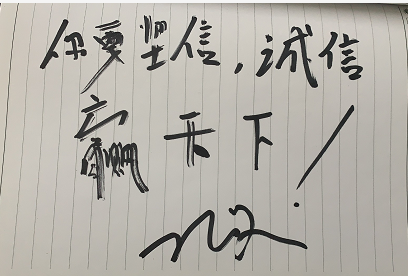 你要坚信，诚信
赢天下！